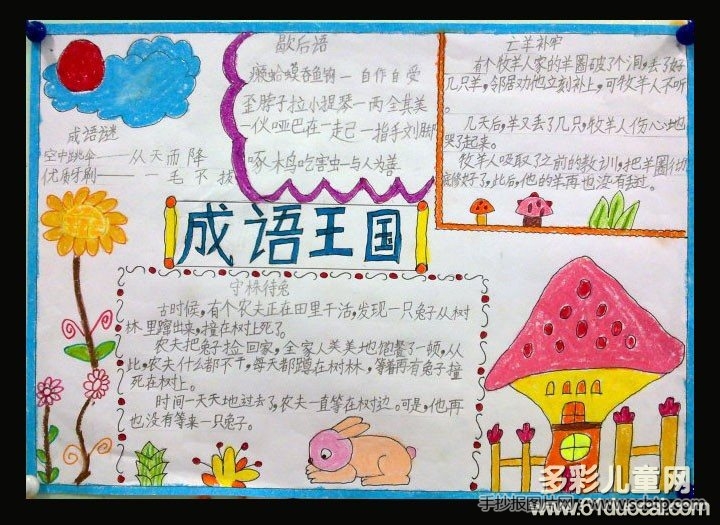 成语谜
空中跳伞——从天而降
优质牙刷——一毛不拔
歇后语
癞蛤蟆吞鱼钩—自作自受
歪脖子拉小提琴—两全其美
一伙哑巴在一起—指手刘脚
啄木鸟吃害虫—与人为善
亡羊补牢
有个牧羊人家的羊圈破了个洞,丢了好
几只羊,邻居劝他立刻补上,可牧羊人不听
。
几天后,羊又丢了几只,牧羊人伤心地
哭了起来。
牧羊人吸取了之前的教训,把羊圈
修好了,此后,他的羊再也没有丢过。
成语王国
守株待兔
古时候,有个农夫正在田里干活,发现一只兔子从树
林里蹿出来,撞在树上死了。
农夫把兔子捡回家,全家人美美地饱餐了一顿,从
此,农夫什么都不干,每天都蹲在树林,等着再有兔子撞
死在树上。
时间一天天地过去了,农夫一直等在树边。可是,他再
也没有等来一只兔子。
多彩儿童网
手抄报图片网
www.61duocai.com